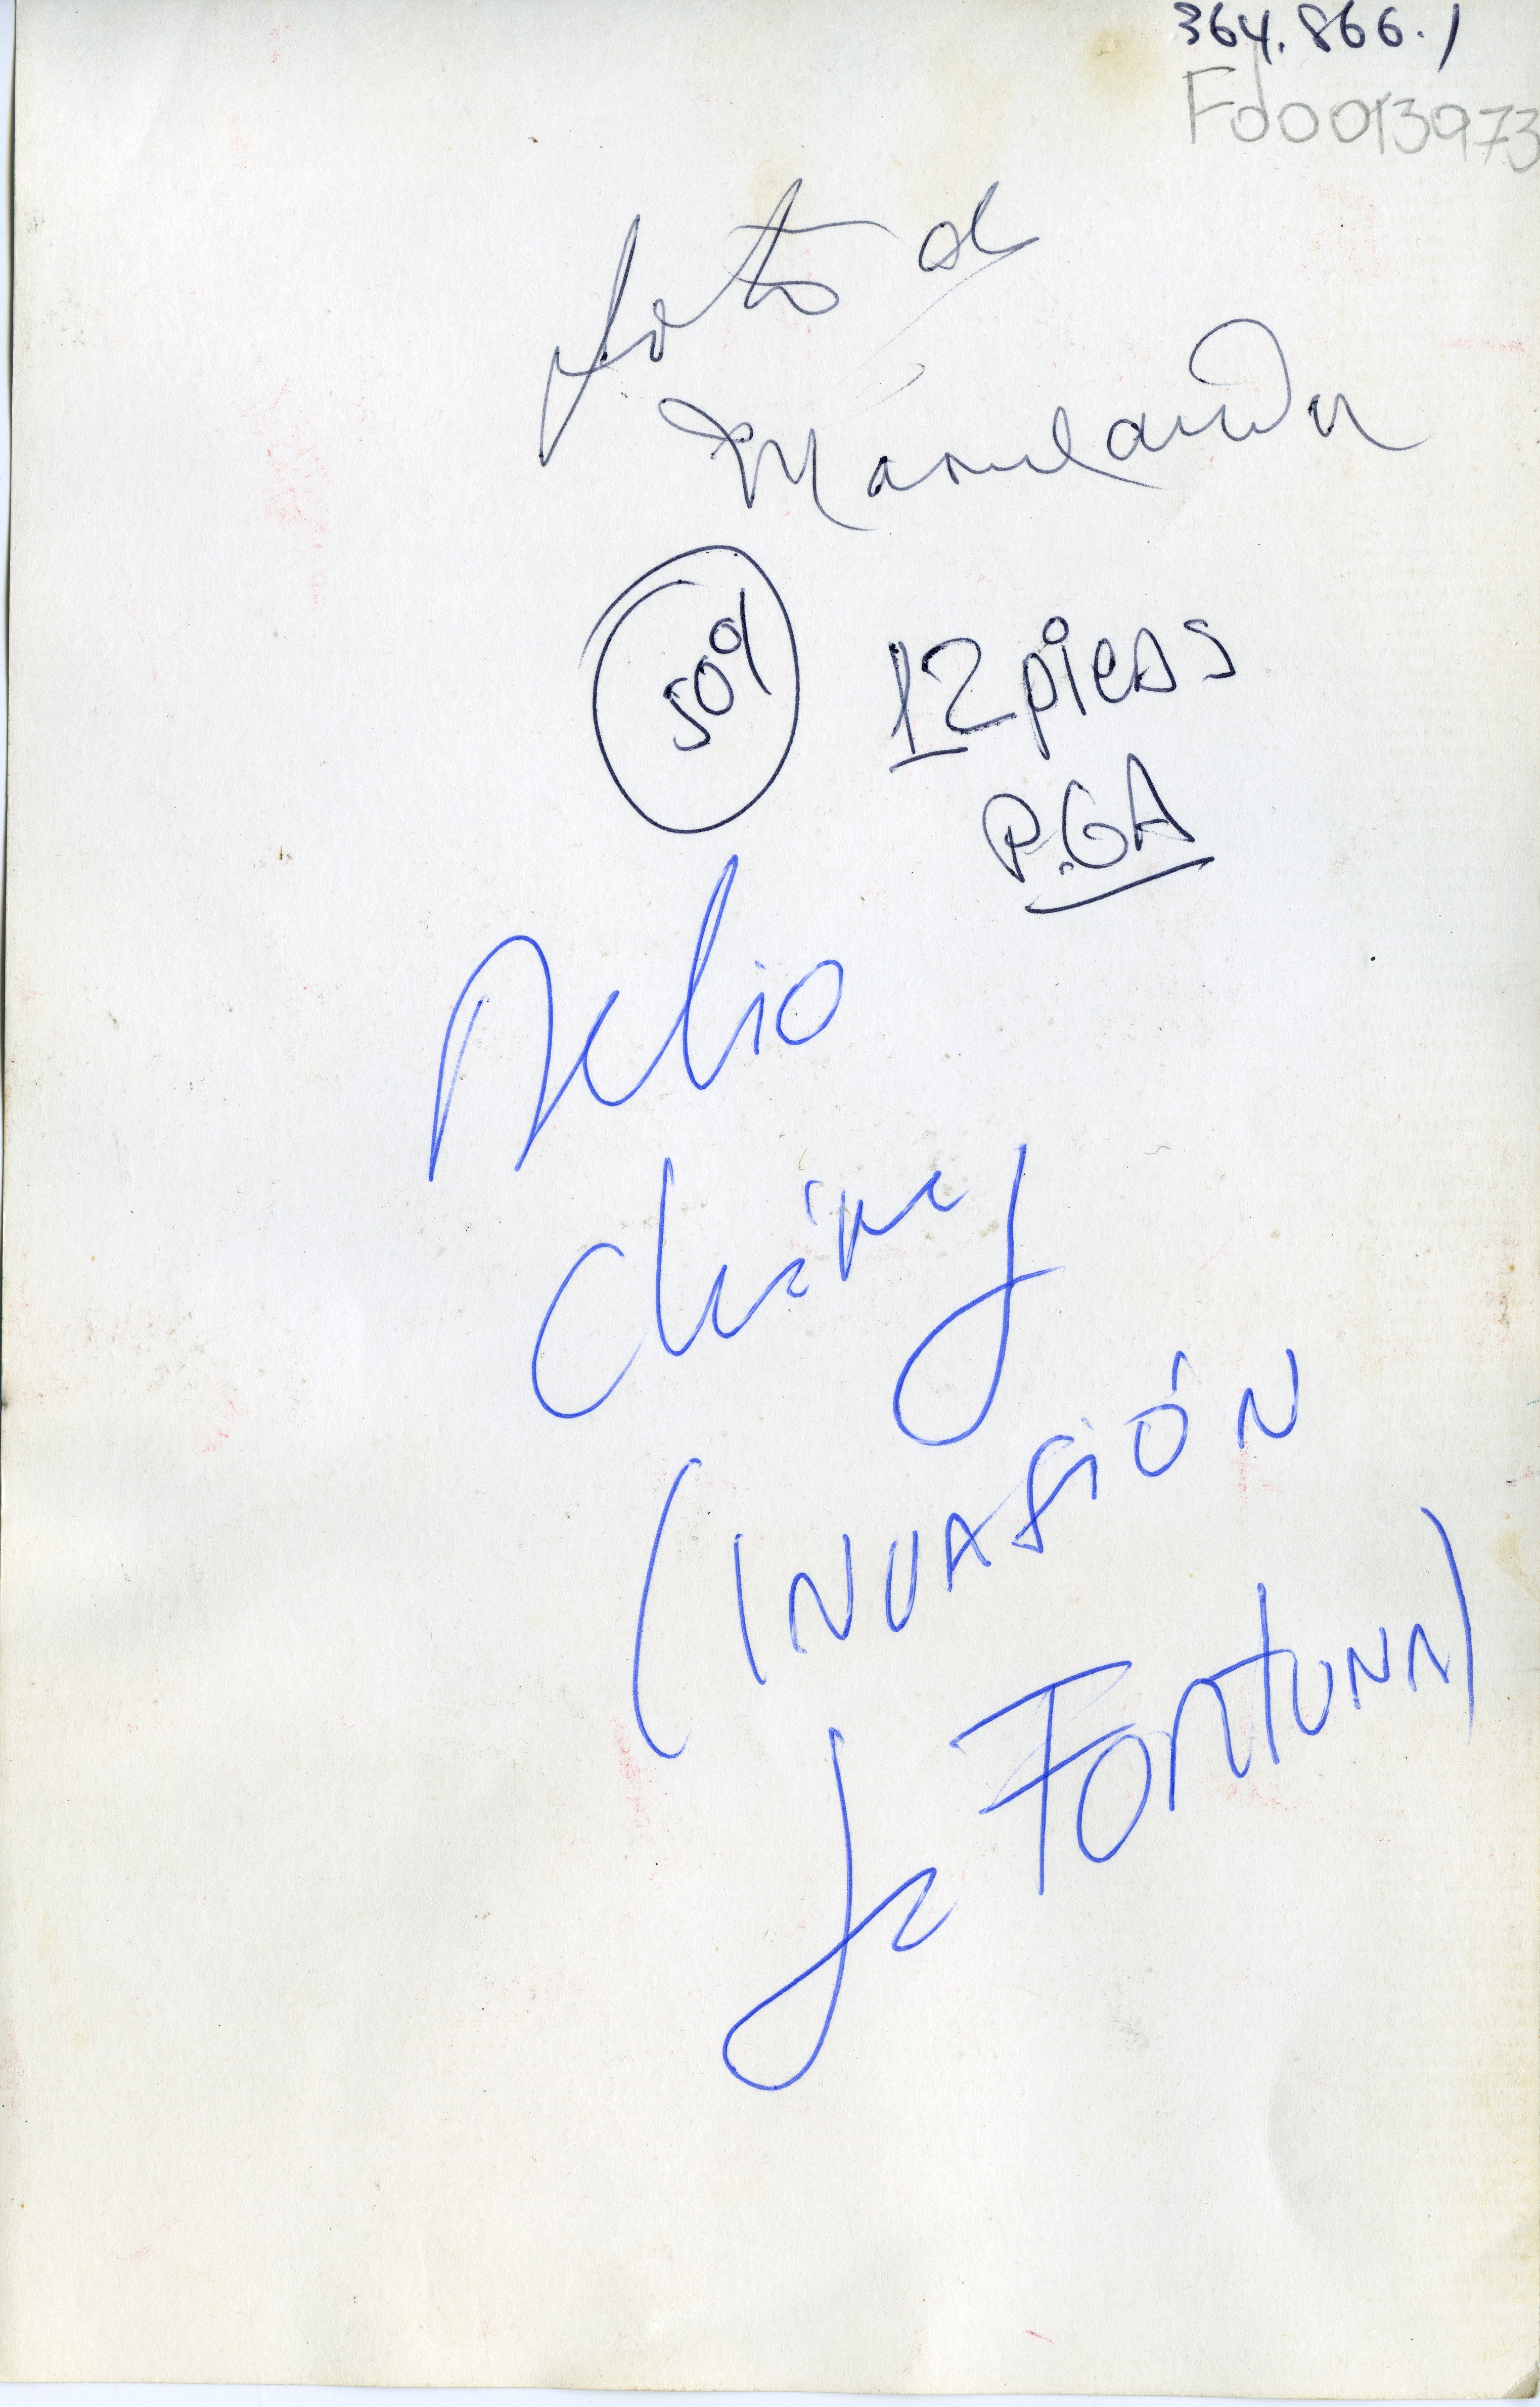 364.866.1
Fd0013973
foto de
Marulanda
50%
12 picas
P.GA
Delio
(INVASIÓN
la FORTUNA)